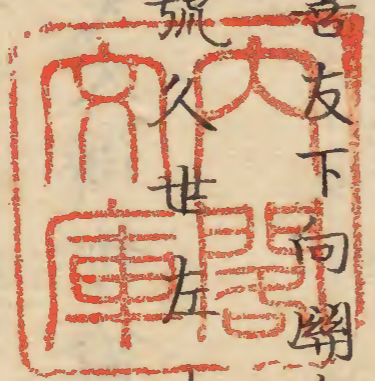 吾友下向關
號久世左
内閣
文庫